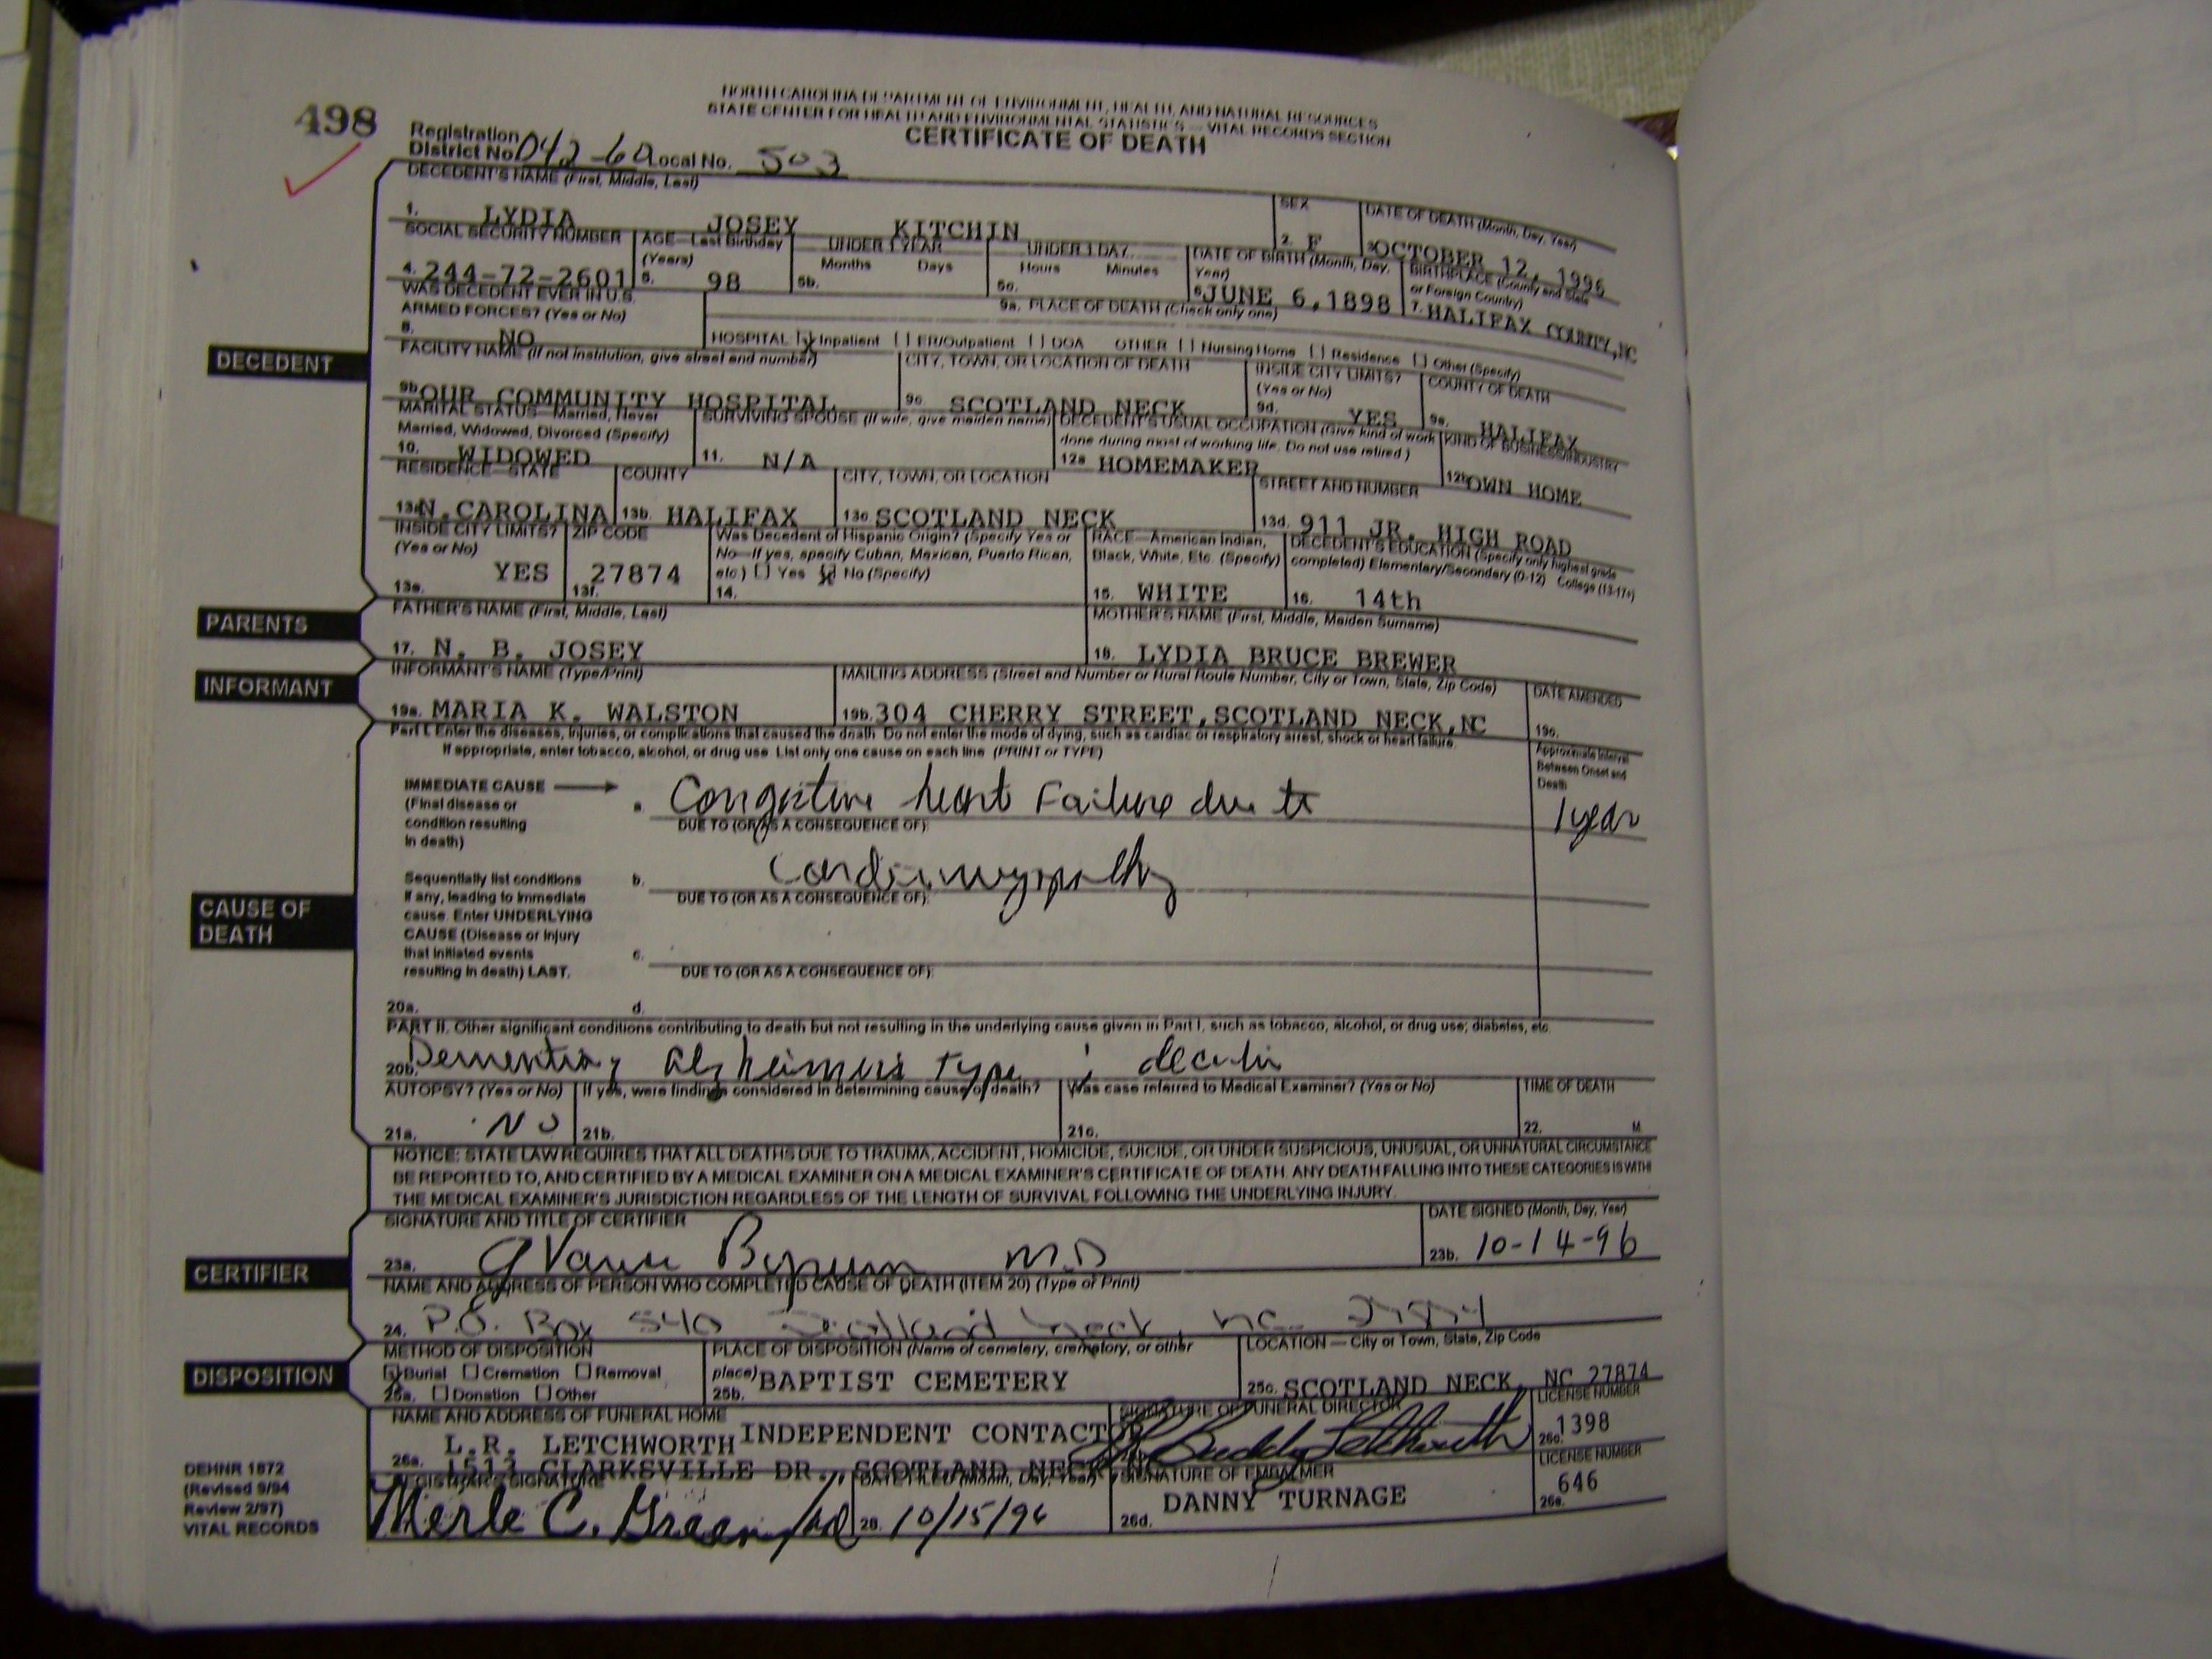 498
NORTH CAROLINA DEPARTMENT OF ENVIRONMENT, HEALTH, AND NATURAL RESOURCES
STATE CENTER FOR HEALTH AND ENVIRONMENTAL STATISTICS — VITAL RECORDS SECTION
CERTIFICATE OF DEATH
Registration District No. 042-60 Local No. 503
DECEDENT
DECEDENT'S NAME (First, Middle, Last)
1. LYDIA JOSEY KITCHIN
SEX
2. F
DATE OF DEATH (Month, Day, Year)
3. OCTOBER 12, 1996
SOCIAL SECURITY NUMBER
4. 244-72-2601
AGE—Last Birthday (Years)
5. 98
UNDER 1 YEAR
Months Days
5b.
UNDER 1 DAY
Hours Minutes
5c.
DATE OF BIRTH (Month, Day, Year)
6. JUNE 6,1898
BIRTHPLACE (County and State or Foreign Country)
7. HALIFAX COUNTY,NC
WAS DECEDENT EVER IN U.S. ARMED FORCES? (Yes or No)
8. NO
9a. PLACE OF DEATH (Check only one)
HOSPITAL [X] Inpatient [ ] ER/Outpatient [ ] DOA OTHER [ ] Nursing Home [ ] Residence [ ] Other (Specify)
FACILITY NAME (If not institution, give street and number)
9b. OUR COMMUNITY HOSPITAL
CITY, TOWN, OR LOCATION OF DEATH
9c. SCOTLAND NECK
INSIDE CITY LIMITS? (Yes or No)
9d. YES
COUNTY OF DEATH
9e. HALIFAX
MARITAL STATUS—Married, Never Married, Widowed, Divorced (Specify)
10. WIDOWED
SURVIVING SPOUSE (If wife, give maiden name)
11. N/A
DECEDENT'S USUAL OCCUPATION (Give kind of work done during most of working life. Do not use retired.)
12a HOMEMAKER
KIND OF BUSINESS/INDUSTRY
12b OWN HOME
RESIDENCE—STATE
13a N.CAROLINA
COUNTY
13b. HALIFAX
CITY, TOWN, OR LOCATION
13c SCOTLAND NECK
STREET AND NUMBER
13d. 911 JR. HIGH ROAD
INSIDE CITY LIMITS? (Yes or No)
13e. YES
ZIP CODE
13f. 27874
Was Decedent of Hispanic Origin? (Specify Yes or No—If yes, specify Cuban, Mexican, Puerto Rican, etc.) [ ] Yes [X] No (Specify)
14.
RACE—American Indian, Black, White, Etc. (Specify)
15. WHITE
DECEDENT'S EDUCATION (Specify only highest grade completed) Elementary/Secondary (0-12) College (13-17+)
16. 14th
PARENTS
FATHER'S NAME (First, Middle, Last)
17. N. B. JOSEY
MOTHER'S NAME (First, Middle, Maiden Surname)
18. LYDIA BRUCE BREWER
INFORMANT
INFORMANT'S NAME (Type/Print)
19a. MARIA K. WALSTON
MAILING ADDRESS (Street and Number or Rural Route Number, City or Town, State, Zip Code)
19b. 304 CHERRY STREET,SCOTLAND NECK,NC
DATE AMENDED
19c.
CAUSE OF DEATH
Part I. Enter the diseases, injuries, or complications that caused the death. Do not enter the mode of dying, such as cardiac or respiratory arrest, shock or heart failure.
If appropriate, enter tobacco, alcohol, or drug use. List only one cause on each line (PRINT or TYPE)
Approximate Interval Between Onset and Death
IMMEDIATE CAUSE (Final disease or condition resulting in death)
a. Congestive heart Failure due to
1 year
DUE TO (OR AS A CONSEQUENCE OF):
Sequentially list conditions if any, leading to immediate cause. Enter UNDERLYING CAUSE (Disease or injury that initiated events resulting in death) LAST.
b. Cardiomyopathy
DUE TO (OR AS A CONSEQUENCE OF):
c.
DUE TO (OR AS A CONSEQUENCE OF):
20a. d.
PART II. Other significant conditions contributing to death but not resulting in the underlying cause given in Part I, such as tobacco, alcohol, or drug use; diabetes, etc.
20b. Dementia, alzheimers type ;
AUTOPSY? (Yes or No)
21a. NO
If yes, were findings considered in determining cause of death?
21b.
Was case referred to Medical Examiner? (Yes or No)
21c.
TIME OF DEATH
22. M
NOTICE: STATE LAW REQUIRES THAT ALL DEATHS DUE TO TRAUMA, ACCIDENT, HOMICIDE, SUICIDE, OR UNDER SUSPICIOUS, UNUSUAL, OR UNNATURAL CIRCUMSTANCE
BE REPORTED TO, AND CERTIFIED BY A MEDICAL EXAMINER ON A MEDICAL EXAMINER'S CERTIFICATE OF DEATH. ANY DEATH FALLING INTO THESE CATEGORIES IS WITH
THE MEDICAL EXAMINER'S JURISDICTION REGARDLESS OF THE LENGTH OF SURVIVAL FOLLOWING THE UNDERLYING INJURY.
CERTIFIER
SIGNATURE AND TITLE OF CERTIFIER
23a. G Vance Bynum M.D
DATE SIGNED (Month, Day, Year)
23b. 10-14-96
NAME AND ADDRESS OF PERSON WHO COMPLETED CAUSE OF DEATH (ITEM 20) (Type or Print)
24. P.O. Box 540 Scotland Neck, NC 27874
DISPOSITION
METHOD OF DISPOSITION
[X] Burial [ ] Cremation [ ] Removal
25a. [ ] Donation [ ] Other
PLACE OF DISPOSITION (Name of cemetery, crematory, or other place)
25b. BAPTIST CEMETERY
LOCATION — City or Town, State, Zip Code
25c. SCOTLAND NECK, NC 27874
NAME AND ADDRESS OF FUNERAL HOME
INDEPENDENT CONTACTOR
L.R. LETCHWORTH
26a. 1513 CLARKSVILLE DR., SCOTLAND NECK, NC
SIGNATURE OF FUNERAL DIRECTOR
Buddy Letchworth
LICENSE NUMBER
26c. 1398
REGISTRAR'S SIGNATURE
Merle C. Green
DATE FILED (Month, Day, Year)
28. 10/15/96
SIGNATURE OF EMBALMER
26d. DANNY TURNAGE
LICENSE NUMBER
26e. 646
DEHNR 1872
(Revised 9/94
Review 2/97)
VITAL RECORDS